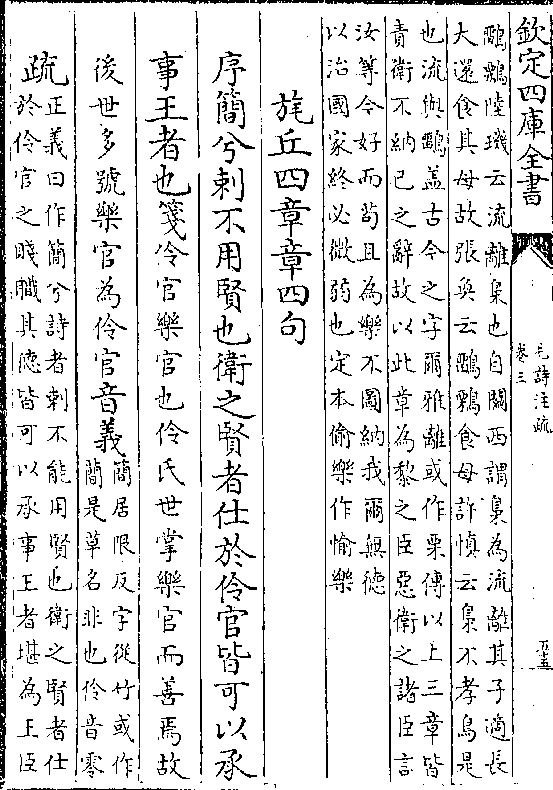 欽定四庫全書
毛詩注疏
卷三
鸝鷅陸璣云流離梟也自關西謂梟為流離其子適長
大還食其母故張奐云鸝鷅食母許慎云梟不孝鳥是
也流與鸝盖古今之字爾雅離或作栗傳以上三章皆
責衛不納已之辭故以此章為黎之臣惡衛之諸臣言
汝等今好而茍且為樂不圖納我爾無德
以治國家終必微弱也定本偷樂作愉樂
旄丘四章章四句
序簡兮刺不用賢也衛之賢者仕於伶官皆可以承
事王者也箋伶官樂官也伶氏世掌樂官而善焉故
後世多號樂官為伶官音義
簡居限反字從竹或作
蕳是草名非也伶音零
疏
正義曰作簡兮詩者刺不能用賢也衛之賢者仕
於伶官之賤職其德皆可以承事王者堪為王臣